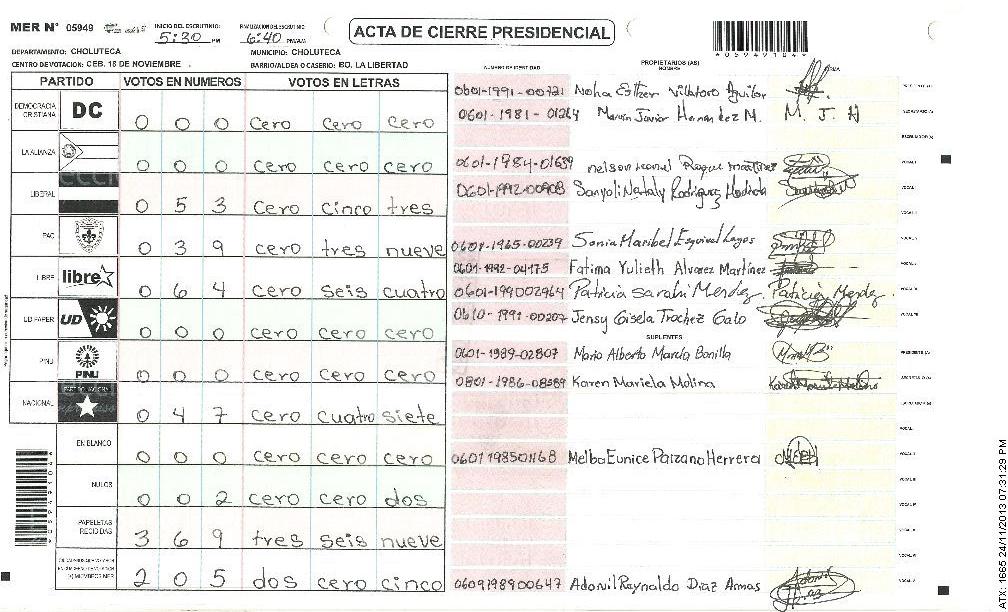 MER Nº 05949 INICIO DEL ESCRUTINIO: 5:30 PM FINALIZACION DEL ESCRUTINIO: 6:40 PM/AM
ACTA DE CIERRE PRESIDENCIAL
05949104
DEPARTAMENTO: CHOLUTECA MUNICIPIO: CHOLUTECA
CENTRO DE VOTACION: CEB. 18 DE NOVIEMBRE BARRIO/ALDEA O CASERIO: BO. LA LIBERTAD
PARTIDO VOTOS EN NUMEROS VOTOS EN LETRAS
DEMOCRACIA CRISTIANA DC 0 0 0 cero cero cero
LA ALIANZA 0 0 0 cero cero cero
LIBERAL 0 5 3 cero cinco tres
PAC 0 3 9 cero tres nueve
LIBRE libre 0 6 4 cero seis cuatro
UD FAPER UD 0 0 0 cero cero cero
PINU PINU 0 0 0 cero cero cero
NACIONAL 0 4 7 cero cuatro siete
EN BLANCO 0 0 0 cero cero cero
NULOS 0 0 2 cero cero dos
PAPELETAS RECIBIDAS 3 6 9 tres seis nueve
2 0 5 dos cero cinco
NUMERO DE IDENTIDAD PROPIETARIOS (AS) NOMBRE FIRMA
0601-1991-00721 Noha Esther Villatoro Aguilar
0601-1981-01264 Marvin Javier Hernandez M. M. J. H
0601-1984-01639 nelson leonel Roque martinez
0601-1992-00908
0601-1965-00239 Sonia Maribel Esquivel Lagos
0601-1992-04175 Fatima Yulieth Alvarez Martínez
0601-199002964 Patricia Sarahi Mendez. Patricia Mendez
Jensy Gisela Trochez Galo
SUPLENTES
0601-1989-02807 Mario Alberto Bonilla
0801-1986-08589 Karen Mariela Molina
0601198501168 Melba Eunice Herrera
0609198900647 Raynaldo Díaz Armas
ATX: 1665 24/11/2013 07:31:29 PM